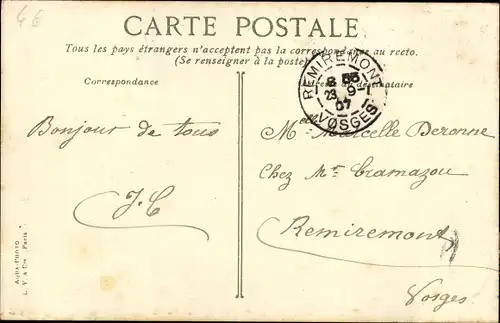 4€
CARTE POSTALE
Tous les pays étrangers n'acceptent pas la correspondance au recto.
(Se renseigner à la poste)
Correspondance
REMIREMONT
8 55
23 - 9
07
VOSGES
Bonjour de tous
J. C
Melle Marcelle Deronne
Chez Mr Cramazou
Remiremont
Vosges
AQUA-PHOTO
L. V. & Cie Paris